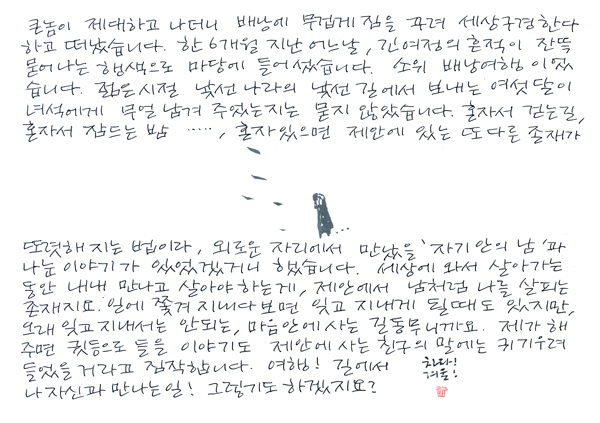 큰놈이 제대하고 나더니 배낭에 무겁게 짐을 꾸려 세상구경한다
하고 떠났습니다. 한 6개월 지난 어느날, 긴여정의 흔적이 잔뜩
묻어나는 행색으로 마당에 들어섰습니다. 소위 배낭여행이었
습니다. 젊은시절 낯선 나라의 낯선 길에서 보내는 여섯달이
녀석에게 무얼 남겨 주었는지는 묻지 않았습니다. 혼자서 걷는길,
혼자서 잠드는 밤 ‥‥‥, 혼자있으면 제안에 있는 또 다른 존재가
또렷해 지는 법이라, 외로운 자리에서 만났을 '자기 안의 남'과
나눈 이야기가 있었겠거니 했습니다. 세상에 와서 살아가는
동안 내내 만나고 살아야 하는게, 제안에서 남처럼 나를 살피는
존재지요. 일에 쫓겨 지내다 보면 잊고 지내게 될때도 있지만,
오래 잊고 지내서는 안되는, 마음안에 사는 길동무니까요. 제가 해
주면 귓등으로 들을 이야기도 제안에 사는 친구의 말에는 귀기우려
들었을거라고 짐작합니다. 여행! 길에서
나 자신과 만나는 일! 그렇기도 하겠지요?